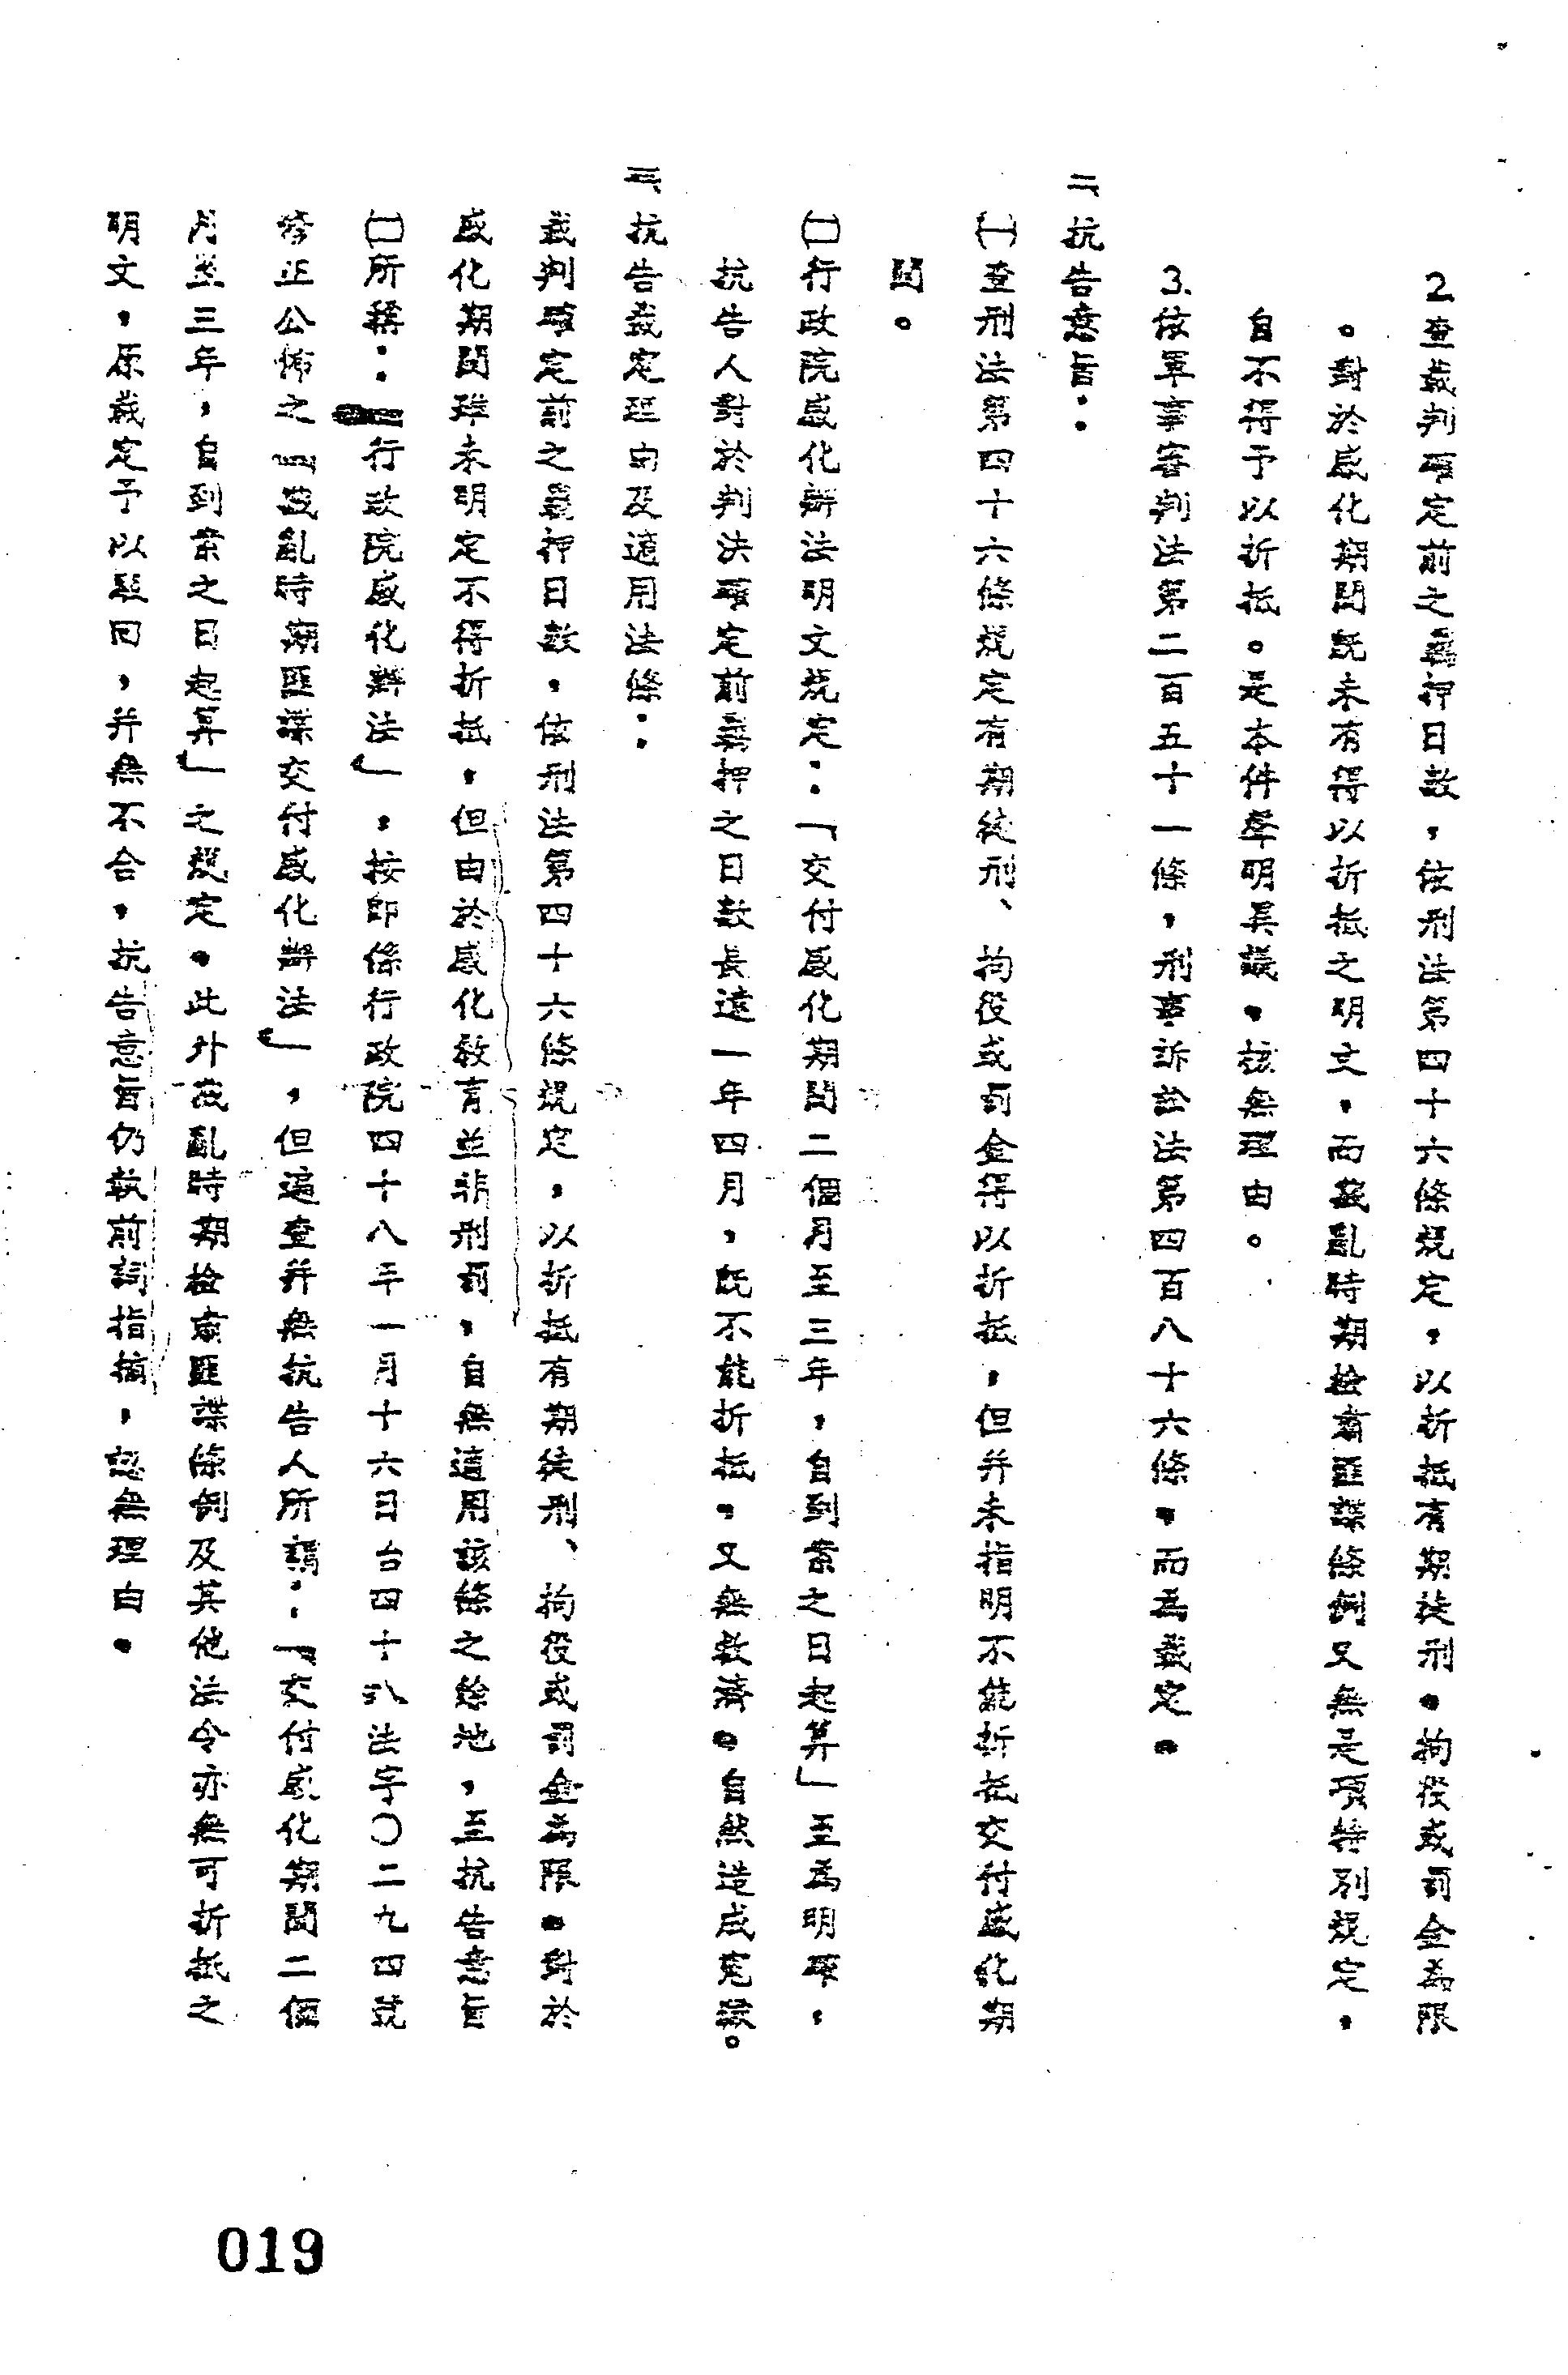 2.查裁判確定前之羈押日數，依刑法第四十六條規定，以折抵有期徒刑。拘役或罰金為限
。對於感化期間既未有得以折抵之明文，而戡亂時期檢肅匪諜條例又無是項特別規定，
自不得予以折抵。是本件聲明異議，核無理由。
3.依軍事審判法第二百五十一條，刑事訴訟法第四百八十六條，而為裁定。
二、抗告意旨：
㈠查刑法第四十六條規定有期徒刑、拘役或罰金得以折抵，但并未指明不能折抵交付感化期
間。
㈡行政院感化辦法明文規定：「交付感化期間二個月至三年，自到案之日起算」至為明確，
抗告人對於判決確定前羈押之日數長達一年四月，既不能折抵，又無救濟。自然造成冤獄。
三、抗告裁定理由及適用法條：
裁判確定前之羈押日數，依刑法第四十六條規定，以折抵有期徒刑、拘役或罰金為限。對於
感化期間雖未明定不得折抵，但由於感化教育並非刑罰，自無適用該條之餘地，至抗告意旨
㈡所稱：「行政院感化辦法」，按即係行政院四十八年一月十六日台四十八法字〇二九四號
修正公佈之「戡亂時期匪諜交付感化辦法」，但遍查并無抗告人所謂：「交付感化期間二個
月至三年，自到案之日起算」之規定。此外戡亂時期檢肅匪諜條例及其他法令亦無可折抵之
明文，原裁定予以駁回，并無不合，抗告意旨仍執前詞指摘，認無理由。
019